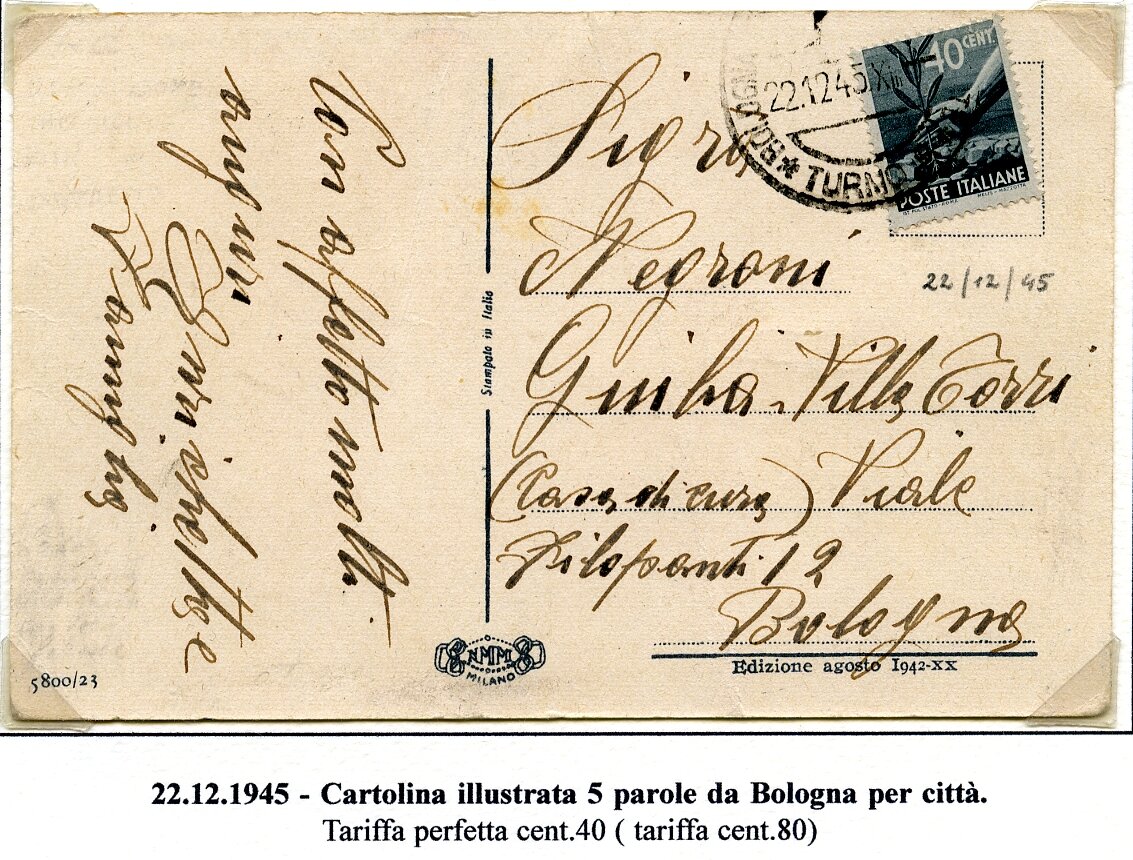 Con affetto molti
auguri
Enrichetta e
Famiglia
5800/23
Stampato in Italia
NMM
MILANO
22.12.45.XIII
* TURNO
40 CENT
POSTE ITALIANE
Sigra
Negroni
22/12/45
Giulia Villa Torri
(Casa di cura) Viale
Filopanti 12
Bologna
Edizione agosto 1942-XX
22.12.1945 - Cartolina illustrata 5 parole da Bologna per città.
Tariffa perfetta cent.40 ( tariffa cent.80)